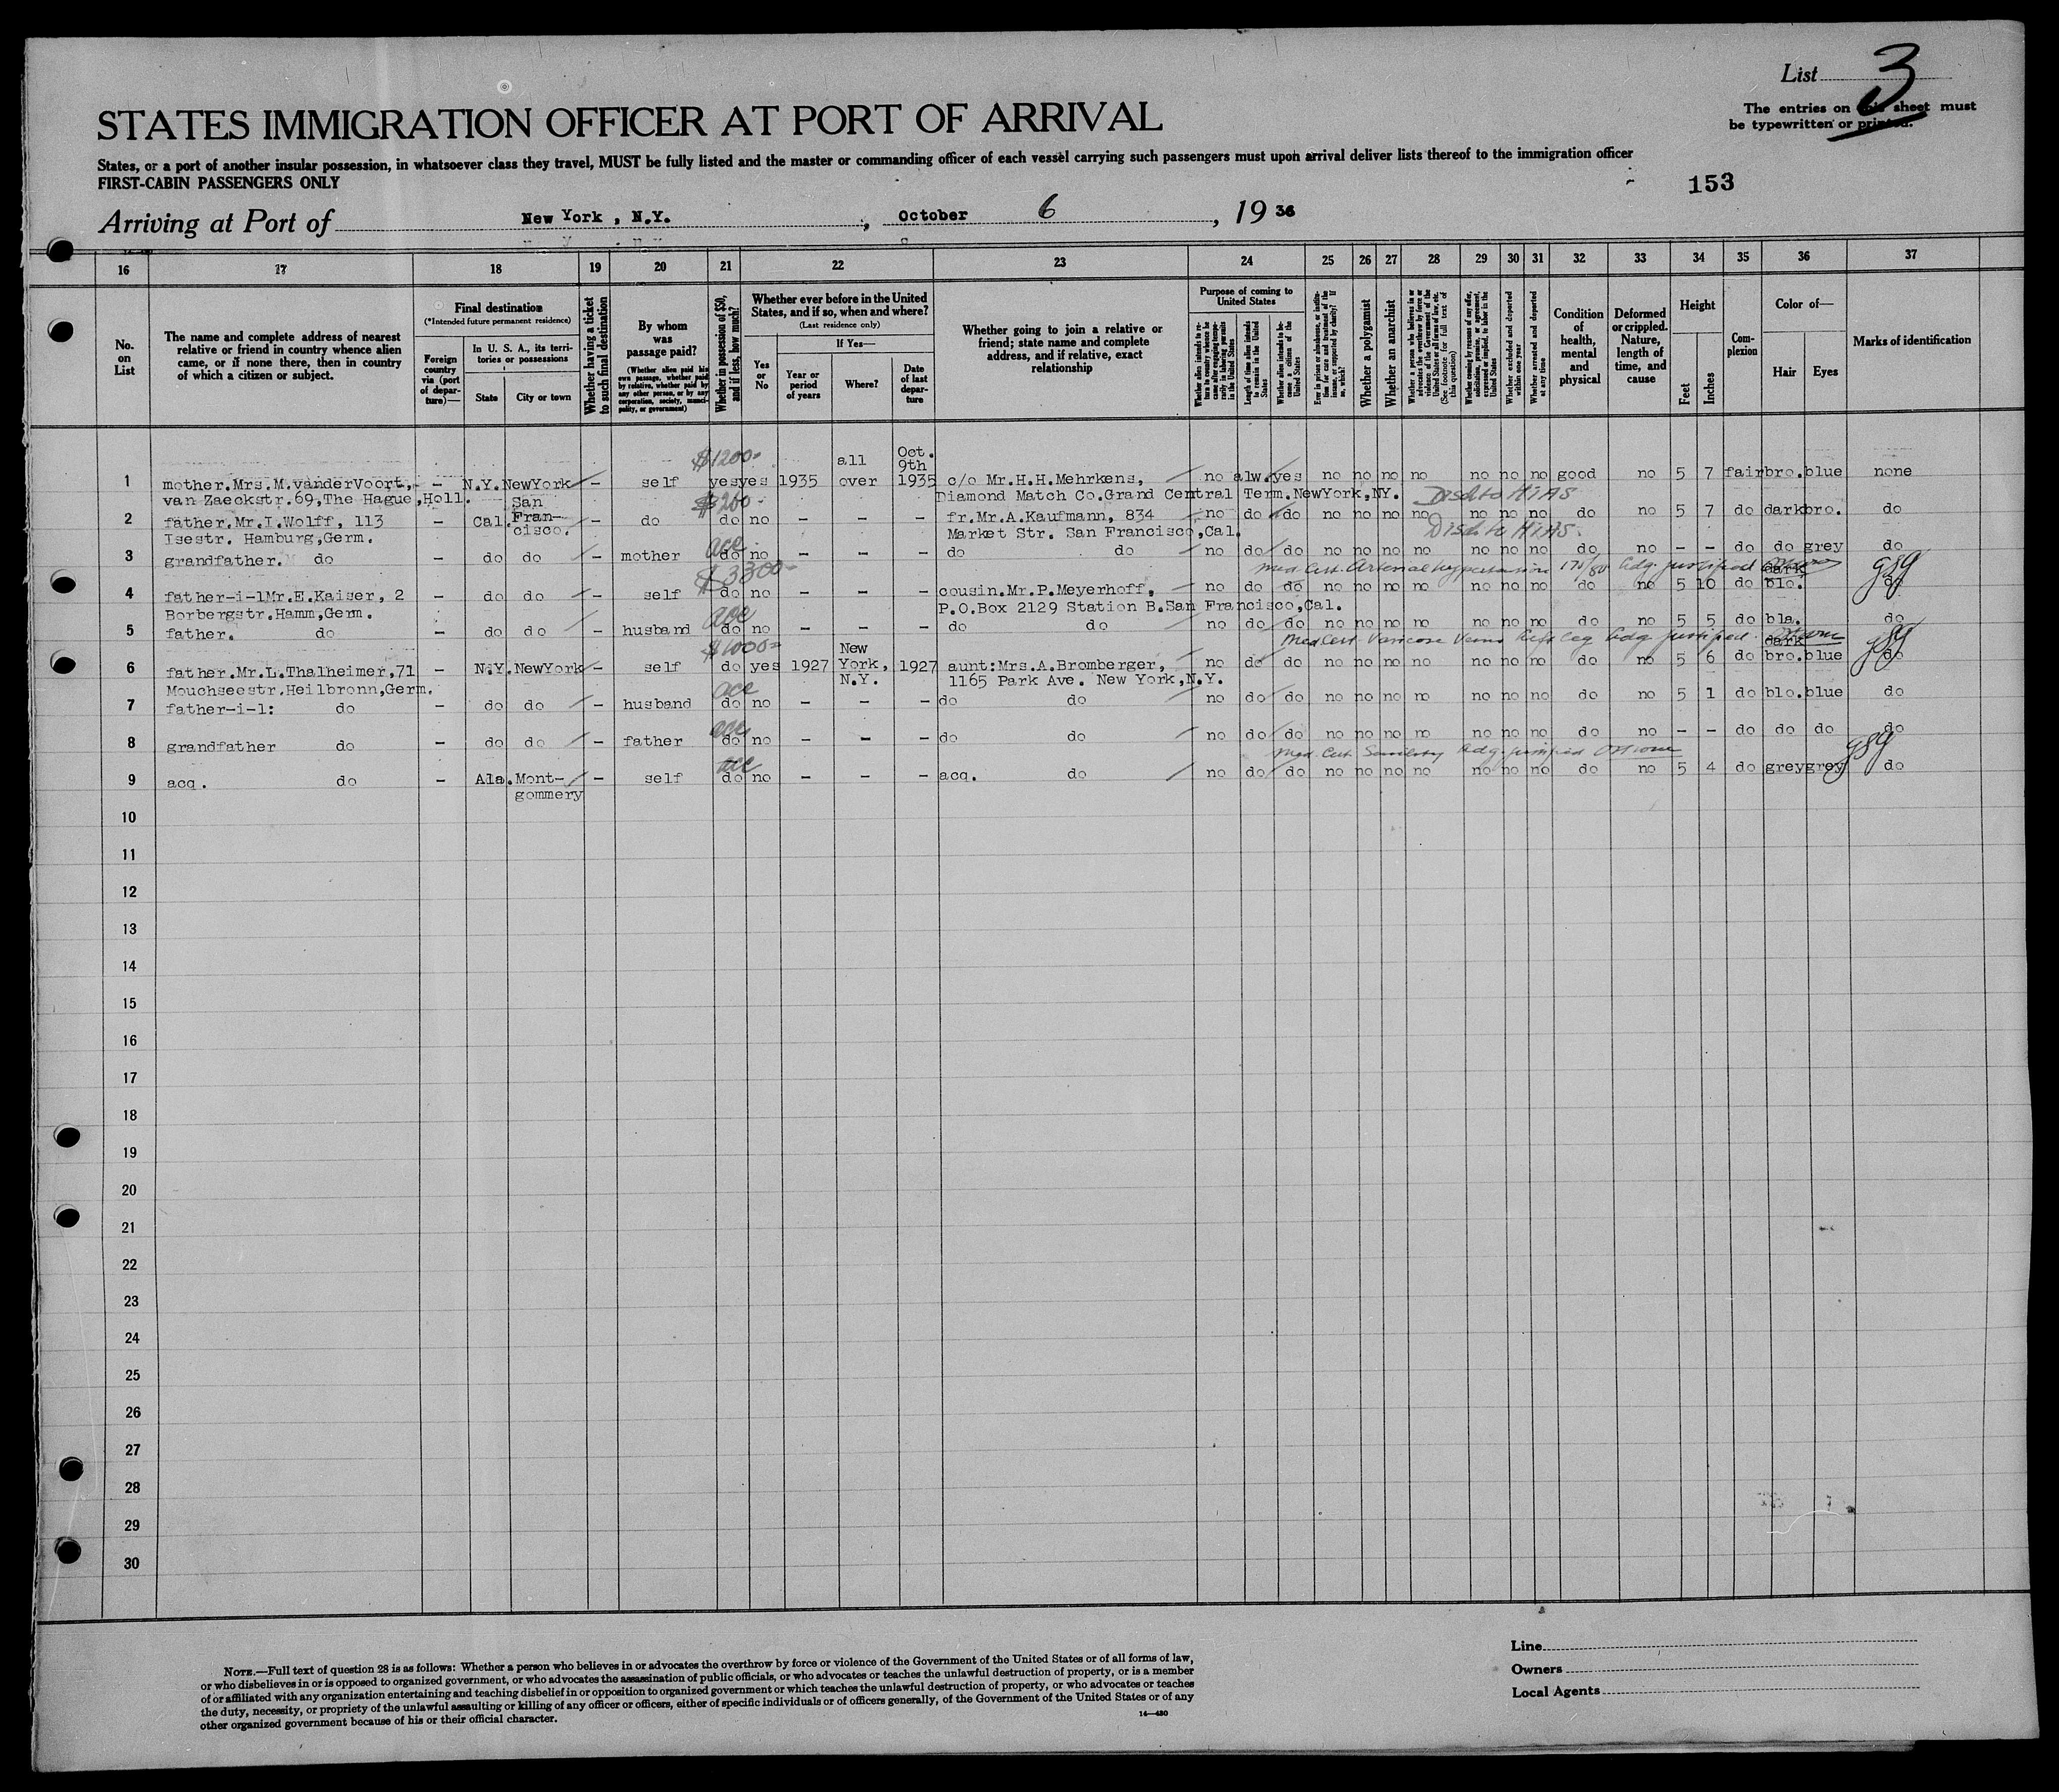 List 3
The entries on this sheet must
be typewritten or printed.
STATES IMMIGRATION OFFICER AT PORT OF ARRIVAL
States, or a port of another insular possession, in whatsoever class they travel, MUST be fully listed and the master or commanding officer of each vessel carrying such passengers must upon arrival deliver lists thereof to the immigration officer
FIRST-CABIN PASSENGERS ONLY
153
Arriving at Port of New York, N.Y., October 6, 19 36
16 17 18 19 20 21 22 23 24 25 26 27 28 29 30 31 32 33 34 35 36 37
No. on List
The name and complete address of nearest
relative or friend in country whence alien
came, or if none there, then in country
of which a citizen or subject.
Final destination
(*Intended future permanent residence)
Foreign country via (port of departure)—
In U. S. A., its territories or possessions
State
City or town
Whether having a ticket to such final destination
By whom was passage paid?
(Whether alien paid his own passage, whether paid by relative, whether paid by any other person, or by any corporation, society, municipality, or government)
Whether in possession of $50, and if less, how much?
Whether ever before in the United States, and if so, when and where?
(Last residence only)
Yes or No
If Yes—
Year or period of years
Where?
Date of last departure
Whether going to join a relative or
friend; state name and complete
address, and if relative, exact
relationship
Purpose of coming to United States
Whether alien intends to return to country whence he came after engaging temporarily in laboring pursuits in the United States
Length of time alien intends to remain in the United States
Whether alien intends to become a citizen of the United States
Ever in prison or almshouse, or institution for care and treatment of the insane, or supported by charity? If so, which?
Whether a polygamist
Whether an anarchist
Whether a person who believes in or advocates the overthrow by force or violence of the Government of the United States or all forms of law, etc. (See footnote for full text of this question)
Whether coming by reason of any offer, solicitation, promise, or agreement, expressed or implied, to labor in the United States
Whether excluded and deported within one year
Whether arrested and deported at any time
Condition of health, mental and physical
Deformed or crippled. Nature, length of time, and cause
Height
Feet
Inches
Complexion
Color of—
Hair
Eyes
Marks of identification
$1200- all Oct. 9th
1 mother.Mrs.M.vanderVoort, - N.Y. NewYork - self yes yes 1935 over 1935 c/o Mr.H.H.Mehrkens, no alw. yes no no no no no no no good no 5 7 fair bro. blue none
van Zaeckstr.69,The Hague,Holl. San $200- Diamond Match Co.Grand Central Term.NewYork,NY. Disch to HIAS
2 father.Mr.I.Wolff, 113 - Cal. Fran- - do do no - - - fr.Mr.A.Kaufmann, 834 no do do no no no no no no no do no 5 7 do dark bro. do
Isestr. Hamburg,Germ. cisco. Market Str. San Francisco,Cal. Disch to HIAS.
3 grandfather. do - do do - mother acc do no - - - do do no do do no no no no no no no do no - - do do grey do
$3300- Med Cert. Arterial hypertension 170/80 Adg. justified dark
4 father-i-lMr.E.Kaiser, 2 - do do - self do no - - - cousin.Mr.P.Meyerhoff, no do do no no no no no no no do no 5 10 do blo. do
Borbergstr.Hamm,Germ. P.O.Box 2129 Station B.San Francisco,Cal.
5 father. do - do do - husband acc do no - - - do do no do do no no no no no no no do no 5 5 do bla. do
$1000- New Med Cert. Varicose Veins Left leg Adg. justified. dark
6 father.Mr.L.Thalheimer,71 - N.Y. NewYork - self do yes 1927 York, 1927 aunt:Mrs.A.Bromberger, no do do no no no no no no no do no 5 6 do bro. blue do
Mouchseestr.Heilbronn,Germ. N.Y. 1165 Park Ave. New York,N.Y.
7 father-i-l: do - do do - husband acc do no - - - do do no do do no no no no no no no do no 5 1 do blo. blue do
8 grandfather do - do do - father acc do no - - - do do no do do no no no no no no no do no - - do do do do
Med. Cert. Senility Adg. justified
9 acq. do - Ala. Mont- - self acc do no - - - acq. do no do do no no no no no no no do no 5 4 do grey grey do
gommery
10
11
12
13
14
15
16
17
18
19
20
21
22
23
24
25
26
27
28
29
30
NOTE.—Full text of question 28 is as follows: Whether a person who believes in or advocates the overthrow by force or violence of the Government of the United States or of all forms of law,
or who disbelieves in or is opposed to organized government, or who advocates the assassination of public officials, or who advocates or teaches the unlawful destruction of property, or is a member
of or affiliated with any organization entertaining and teaching disbelief in or opposition to organized government or which teaches the unlawful destruction of property, or who advocates or teaches
the duty, necessity, or propriety of the unlawful assaulting or killing of any officer or officers, either of specific individuals or of officers generally, of the Government of the United States or of any
other organized government because of his or their official character.
14—430
Line
Owners
Local Agents